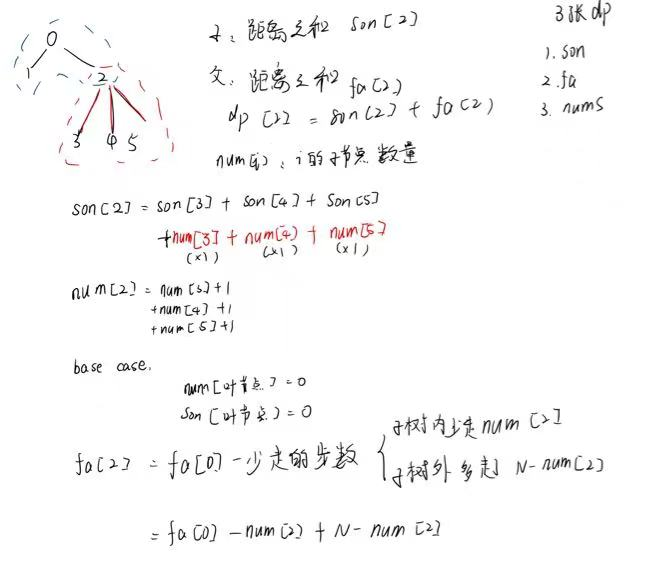 0
1
2
3 4 5
子:距离之和 son[2]
父:距离之和 fa[2]
dp[2] = son[2] + fa[2]
num[i]:i的子节点数量
3张dp
1. son
2. fa
3. nums
son[2] = son[3] + son[4] + son[5]
+num[3] + num[4] + num[5]
(x1) (x1) (x1)
num[2] = num[3]+1
+num[4]+1
+num[5]+1
base case.
num[叶节点]=0
son[叶节点]=0
fa[2] = fa[0] - 少走的步数
子树内少走num[2]
子树外多走了 N-num[2]
= fa[0] - num[2] + N - num[2]